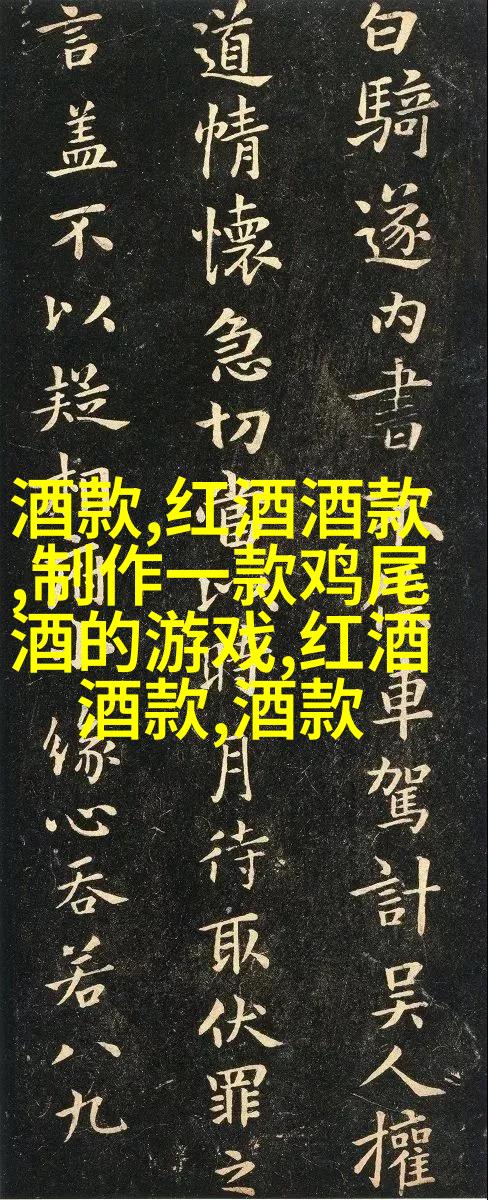 酒款,红酒酒款
,制作一款鸡尾
酒的游戏,红酒
酒款,酒款
白騎遂内書車駕計吳人權
道情懷急切當時月待取伏罪之
言盖不以疑緣心吞若八九